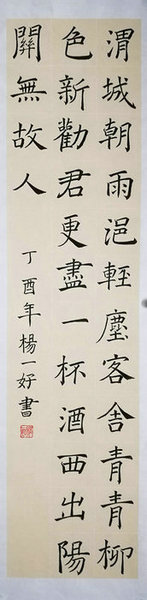 渭城朝雨浥輕塵客舍青青柳
色新勸君更盡一杯酒西出陽
關無故人
丁酉年楊一好書